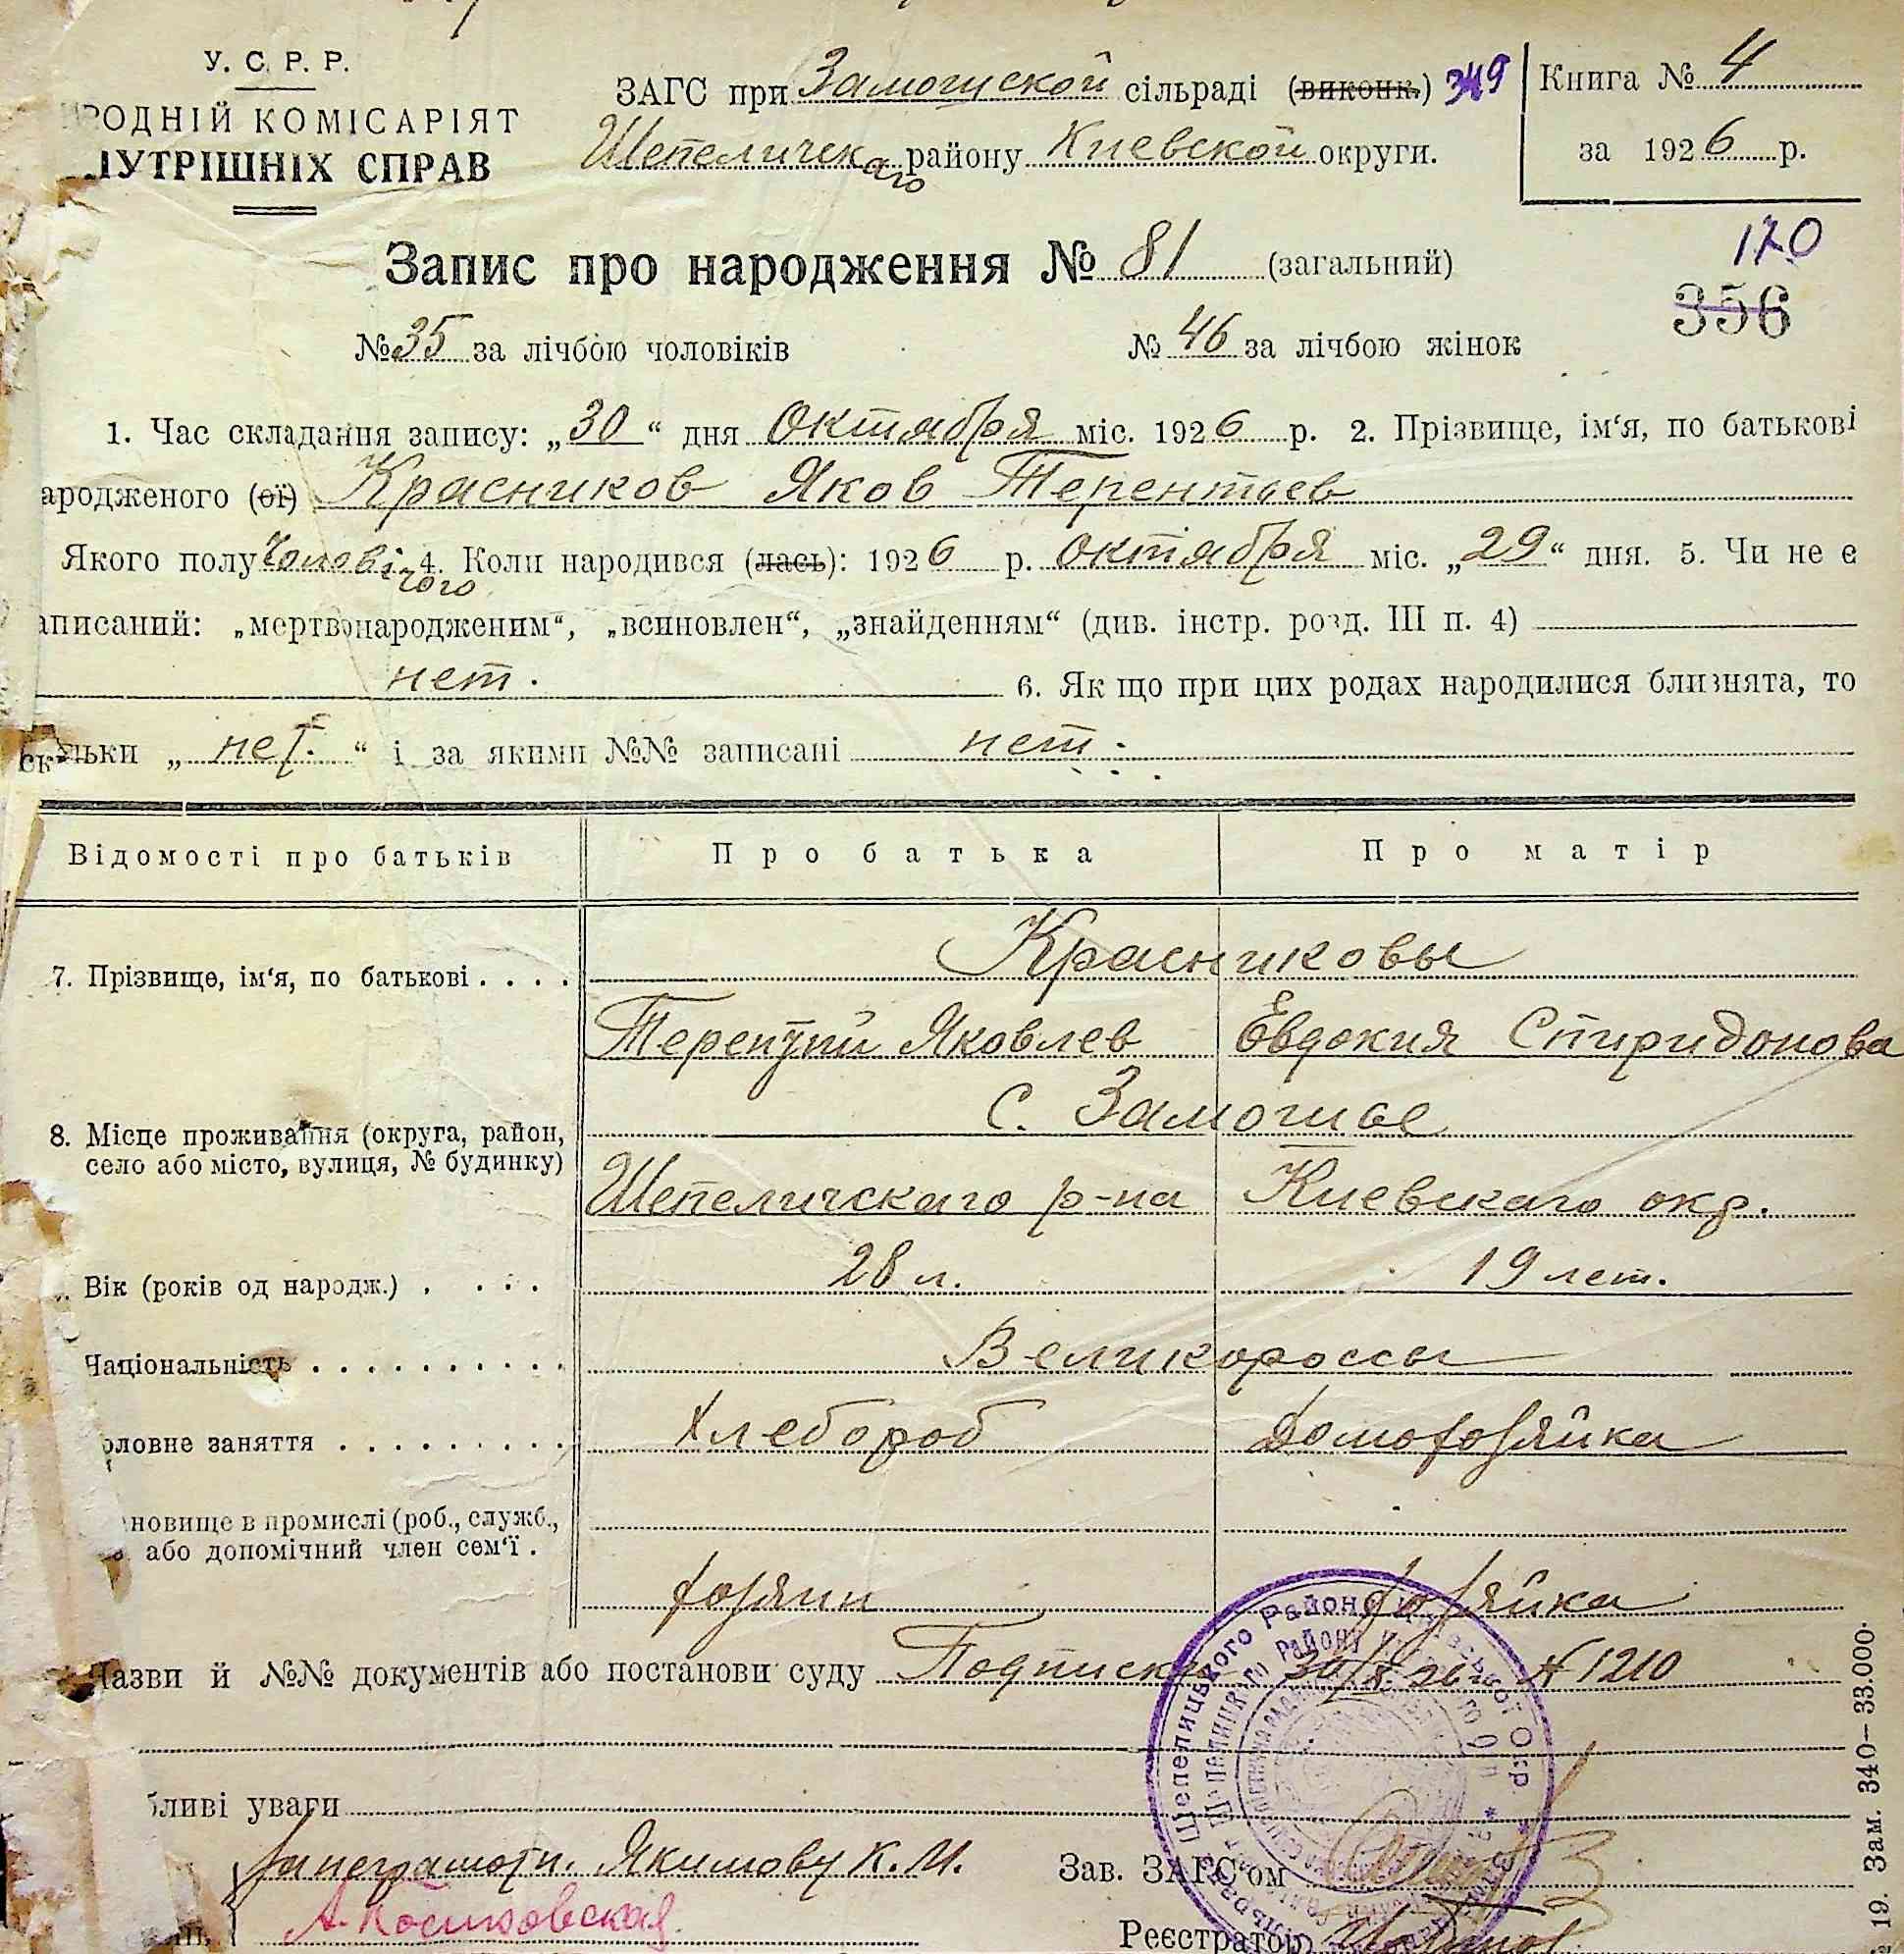 У. С. Р. Р.
РОДНІЙ КОМІСАРІЯТ
УТРІШНІХ СПРАВ
ЗАГС при Замошской сільраді (виконк.) 349
Шепеличскаго району Киевской округи.
Книга № 4
за 1926 р.
Запис про народження № 81 (загальний)
120
356
№ 35 за лічбою чоловіків № 46 за лічбою жінок
1. Час складання запису: „30“ дня Октября міс. 1926 р. 2. Прізвище, ім‘я, по батькові
ародженого (ої) Красников Яков Терентьев
Якого полу Чоловічого 4. Коли народився (лась): 1926 р. Октября міс. „29“ дня. 5. Чи не є
аписаний: „мертвонародженим“, „всиновлен“, „знайденням“ (див. інстр. розд. III п. 4)
нет. 6. Як що при цих родах народилися близнята, то
скільки „нет.“ і за якими №№ записані нет.
Відомості про батьків Про батька Про матір
Красниковы
7. Прізвище, ім‘я, по батькові
Терентий Яковлев Евдокия Спиридонова
С. Замошье
8. Місце проживання (округа, район,
село або місто, вулиця, № будинку)
Шепеличскаго р-на Киевскаго окр.
Вік (років од народж.) 28 л. 19 лет.
Національність Великороссы
оловне заняття Хлебороб Домохозяйка
новище в промислі (роб., служб.,
або допомічний член сем‘ї
хозяин хозяйка
Назви й №№ документів або постанови суду Подписка 30/X 26 г. № 1210
бливі уваги
за неграмотн. Якимову К. И.
Зав. ЗАГС‘ом
А. Косиковская
Реєстратор
19. Зам. 340—33.000.
Шепелицького Району Київської Окр.